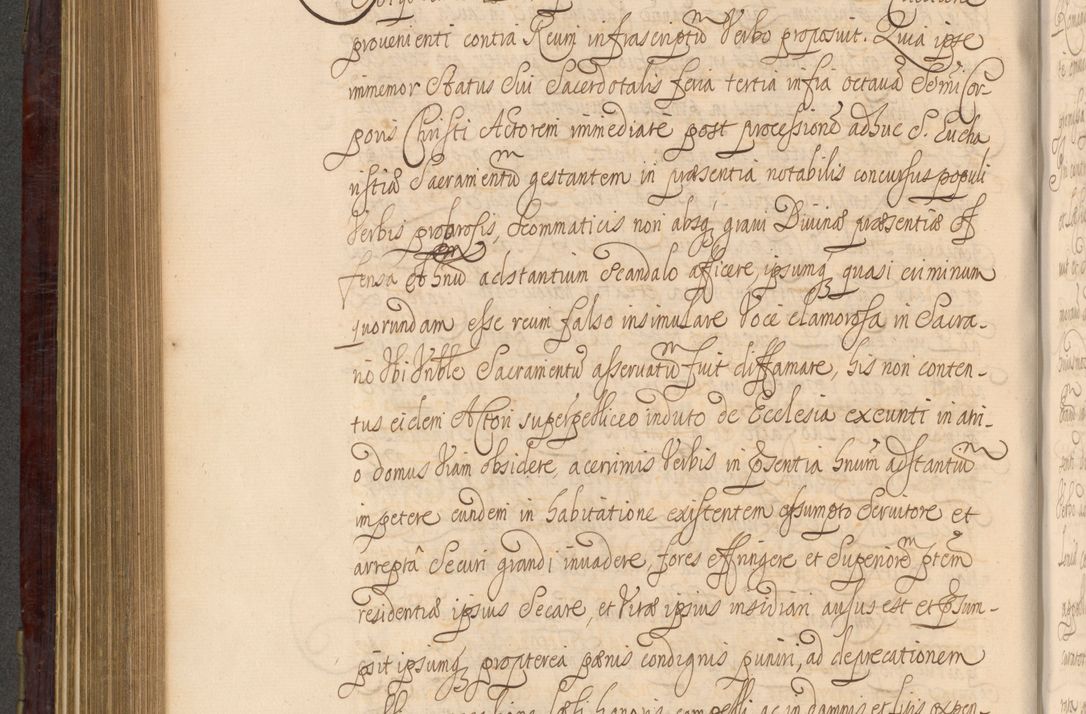 provenienti contra Reum infrascriptū Verbo proposuit. Quia ipse
immemor Status Sui Sacerdotalis feria tertia infra octavā Sſmi Cor-
poris Christi Actorem immediate post processionē adhuc S. Eucha
ristiæ Sacramentū gestantem in præsentia notabilis concursus populi
Verbis probrosis, scommaticis non absq gravi Divinæ præsentiæ of
fensa et hnū adstantium Scandalo afficere, ipsumq quasi criminum
quorundam esse reum falso insimulare Voce clamorosa in Sacra-
rio Ubi Vnble Sacramentū asservatū fuit diffamare, his non conten-
tus eidem Actori superpelliceo induto de Ecclesia exeunti in atri-
o domus Viam obsidere, acerrimis Verbis in p̄sentia hnum adstantiū
impetere eundem in habitatione existentem assumpto Servitore et
arreptâ Securi grandi invadere, fores effringere et Superiorē ptem
residentiæ ipsius Secare, et Vitæ ipsius insidiari ausus est et p̄sum-
psit ipsumq propterea pœnis condignis puniri, ad deprecationem
in damnis et litis expen-